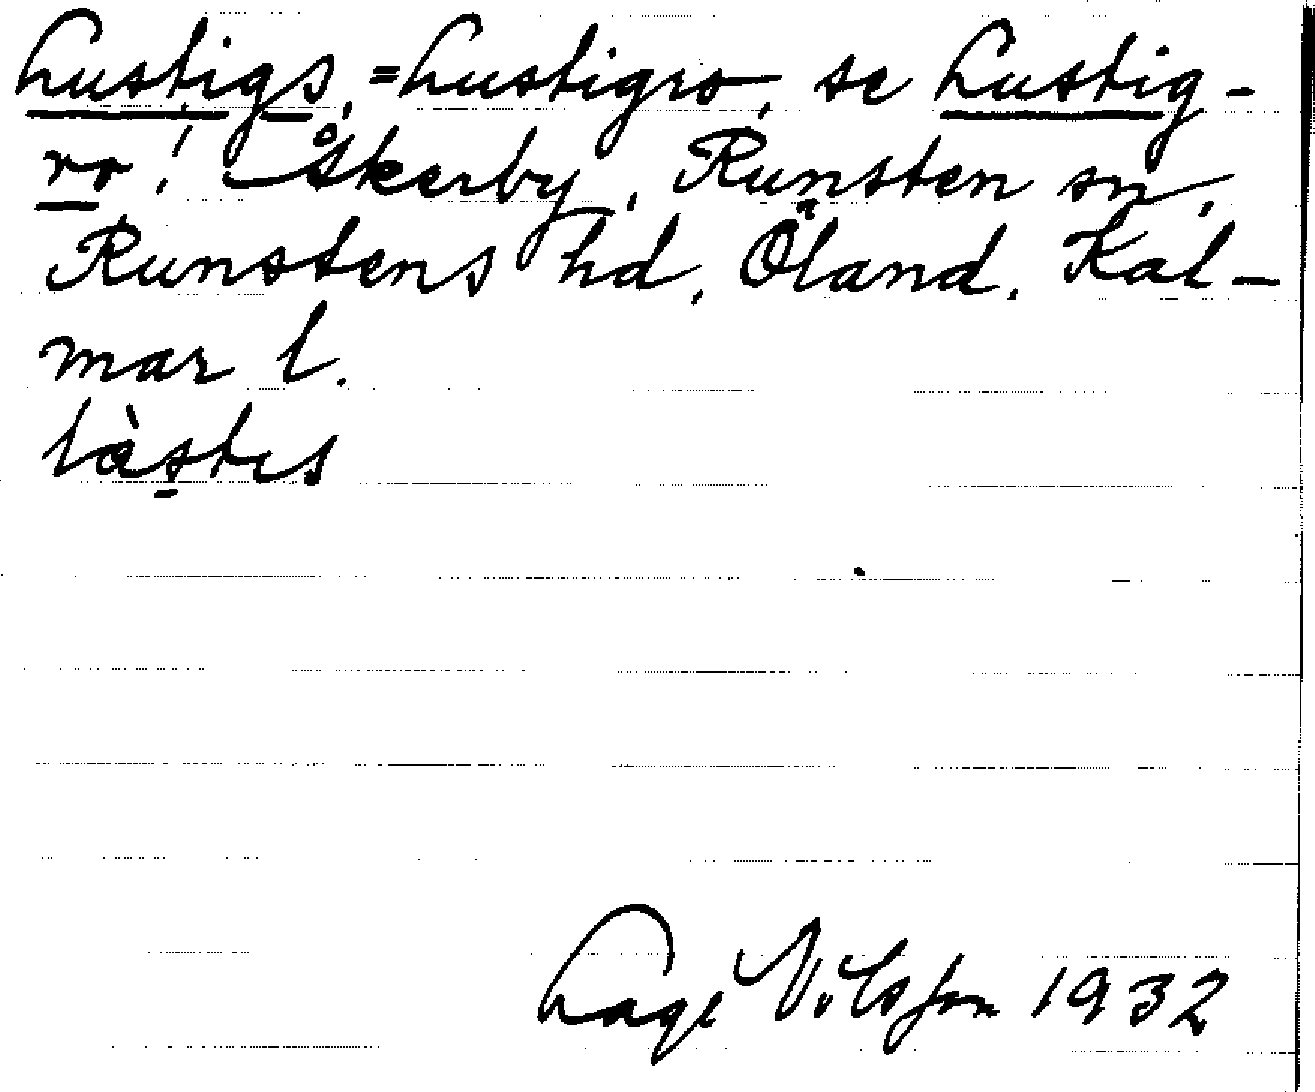 Lustigs, =Lustigro, se Lustig-
ro! Åkerby, Runsten sn,
Runstens hd, Öland, Kal-
mar l.
làstis
Lage Nilsson 1932